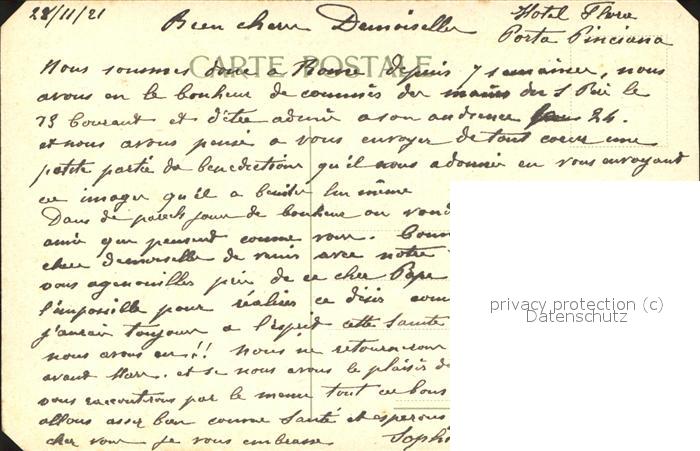 28/11/21
Bien chere Demoiselle
Hotel Flora
Porta Pinciana
CARTE POSTALE
Nous sommes donc a Rome depuis 7 semaines, nous
avons eu le bonheur de des mains du S Père le
23 Courant et d'être admis a son audience 24.
et nous avons pensé a vous envoyer de tout coeur une
petite partie de benedictions qu'il nous a donnés en vous envoyant
ce image qu'il a lui même
Dans de pareils jours de bonheur on
amie qui pensent comme vous.
chere demoiselle de venir avec notre
vous agenouiller près de ce cher Pape
l'impossible pour réaliser ce désir
j'aurai toujour a l'esprit cette Sainte
nous avons eu!! Nous ne retournerons
avant Mars. et si nous avons le plaisir de
vous rencontrer par le meme tout ce
allons assez bien comme Santé et esperons
cher vous je vous embrasse Sophie
privacy protection (c)
Datenschutz